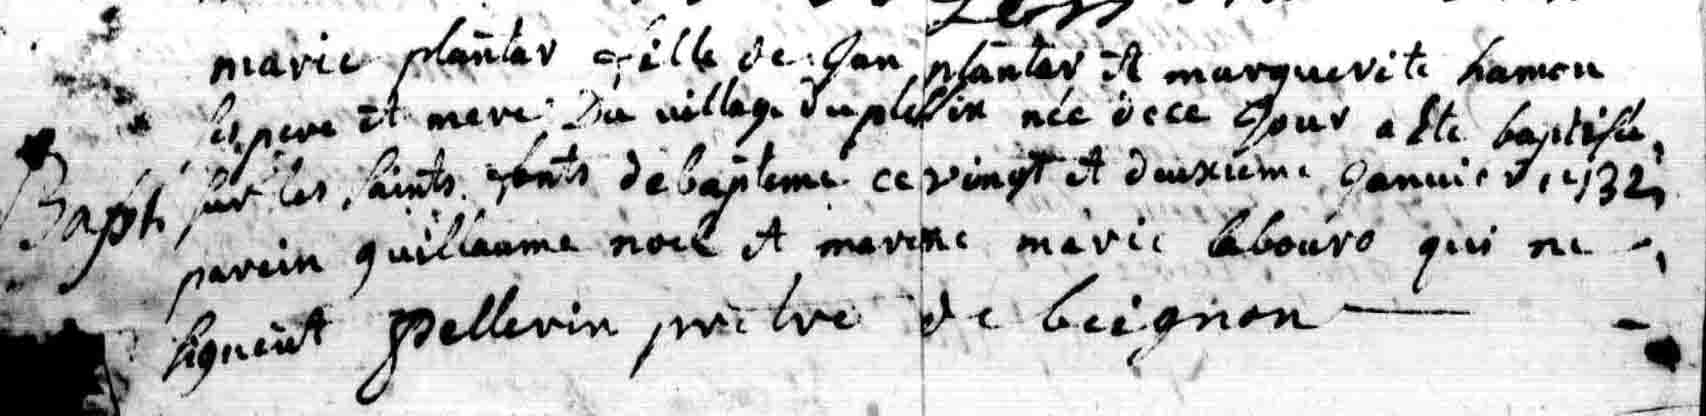 marie plantar fille de Jan plantar et marguerite hamon
ses pere et mere Du village du plessix née de ce Jour a Ete baptisée
Bapt sur les saints fonts de bapteme ce vingt et deuxieme Janvier
parein guillaume noel et marene marie labouro qui ne
signent Pellerin prêtre de beignon